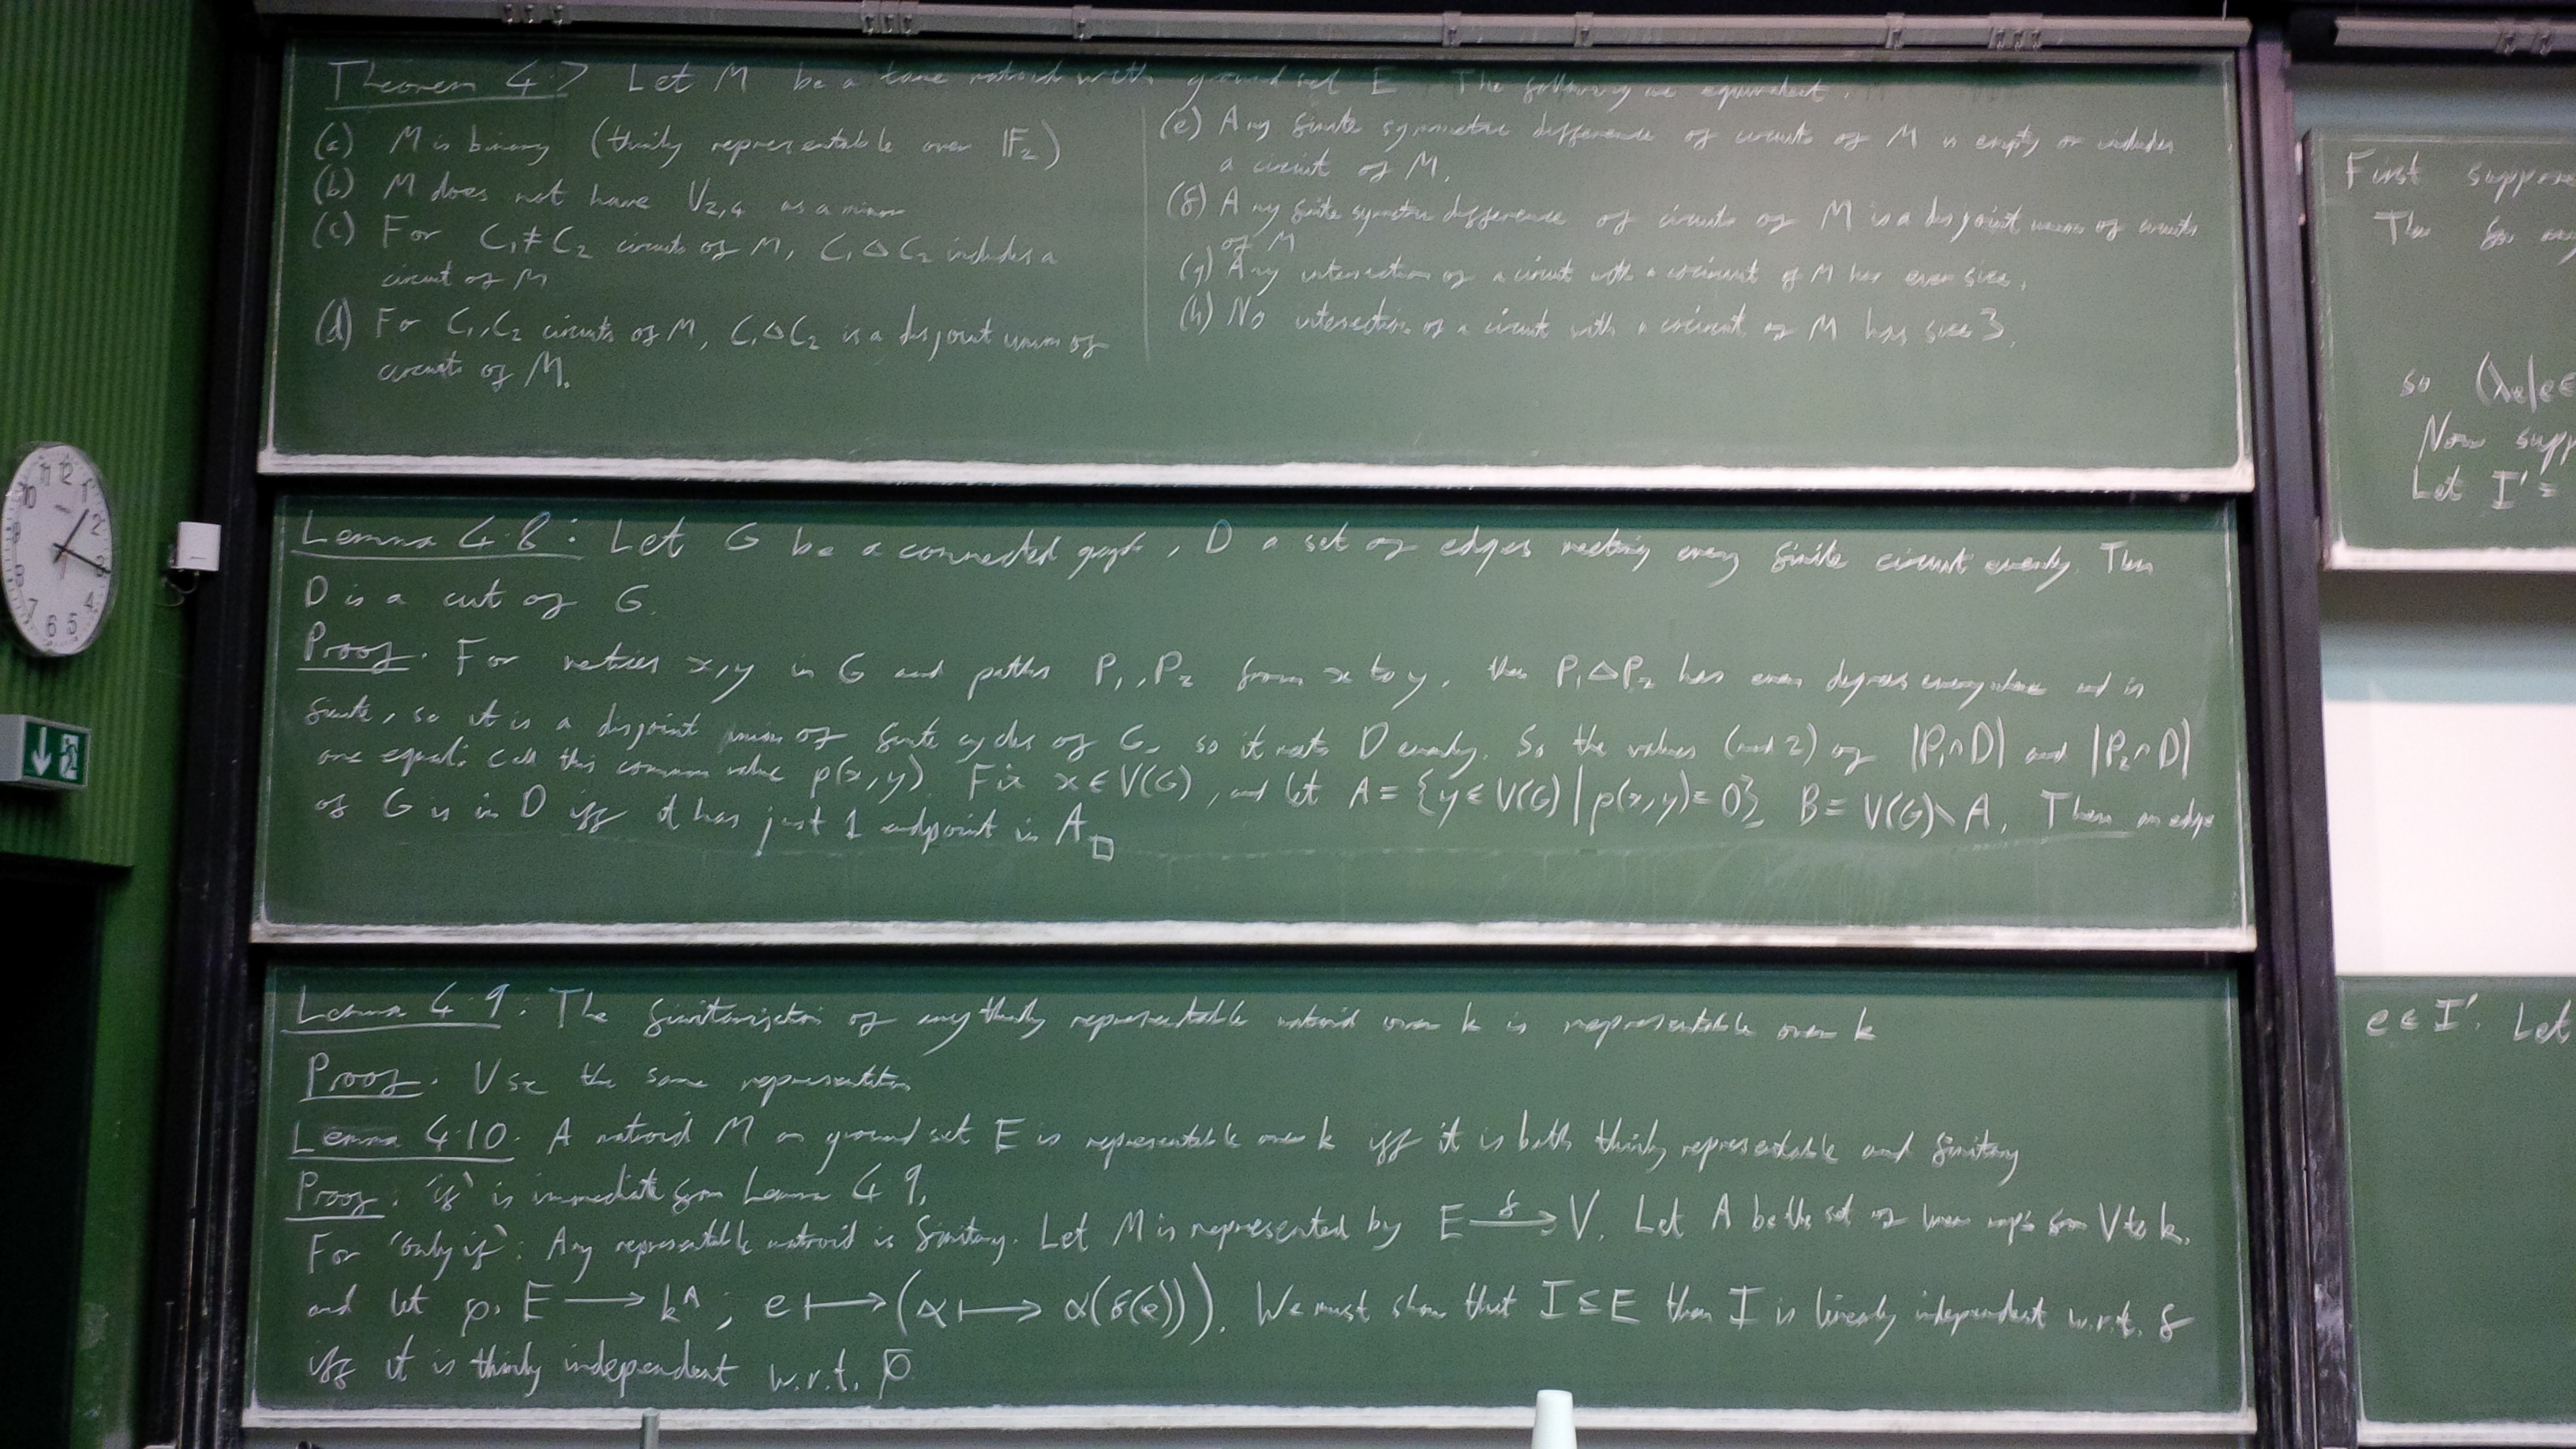 Theorem 4.7 Let M be a tame matroid with ground set E The following are equivalent.
(a) M is binary (thinly representable over IF₂)
(b) M does not have U₂,₄ as a minor
(c) For C₁≠C₂ circuits of M, C₁△C₂ includes a
circuit of M
(d) For C₁,C₂ circuits of M, C₁△C₂ is a disjoint union of
circuits of M.
(e) Any finite symmetric difference of circuits of M is empty or includes
a circuit of M.
(f) Any finite symmetric difference of circuits of M is a disjoint union of circuits
of M
(g) Any intersection of a circuit with a cocircuit of M has even size.
(h) No intersection of a circuit with a cocircuit of M has size 3.
Lemma 4.8: Let G be a connected graph, D a set of edges meeting every finite circuit evenly. Then
D is a cut of G.
Proof. For vertices x,y in G and paths P₁,P₂ from x to y, the P₁△P₂ has even degrees everywhere and is
finite, so it is a disjoint union of finite cycles of G, so it meets D evenly. So the values (mod 2) of |P₁∩D| and |P₂∩D|
are equal: call this common value p(x,y). Fix x∈V(G), and let A={y∈V(G)|p(x,y)=0}, B=V(G)∖A. Then an edge
of G is in D iff it has just 1 endpoint in A □
Lemma 4.9: The finitarisation of any thinly representable matroid over k is representable over k
Proof. Use the same representation
Lemma 4.10. A matroid M on ground set E is representable over k iff it is both thinly representable and finitary
Proof. 'if' is immediate from Lemma 4.9.
For 'only if': Any representable matroid is finitary. Let M is represented by E —f→ V. Let A be the set of linear maps from V to k,
and let ρ: E ⟶ kᴬ; e ⟼ (α ⟼ α(f(e))). We must show that I⊆E then I is linearly independent w.r.t. f
iff it is thinly independent w.r.t. ρ
First suppose
The for any
so (λₑ|e∈
Now supp
Let I'=
e∈I'. Let
11 12 1
10 2
9 3
8 4
7 6 5